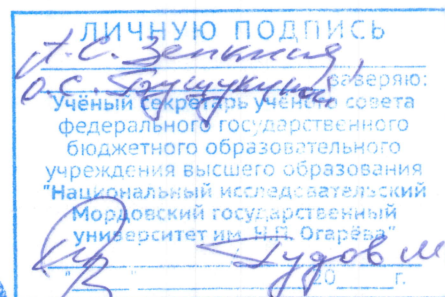 ЛИЧНУЮ ПОДПИСЬ
А.С. Зенкина,
О.С. заверяю:
Учёный секретарь учёного совета
федерального государственного
бюджетного образовательного
учреждения высшего образования
"Национальный исследовательский
Мордовский государственный
университет им. Н.П. Огарёва"
Гудов М
" " 20 г.